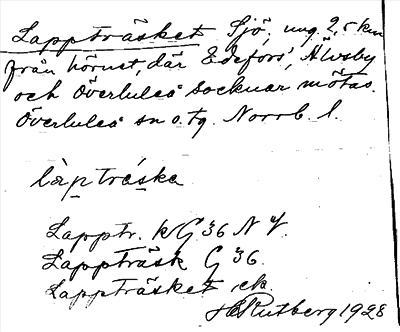 Lappträsket Sjö, ung. 2,5 km
från hörnet, där Edefors', Älvsby
och Överluleå socknar mötas.
Överluleå sn o. tg. Norrb. l.
làp tráska
Lapptr. kG 36 N V.
Lappträsk G 36.
Lappträsket ek.
H Rutberg 1928